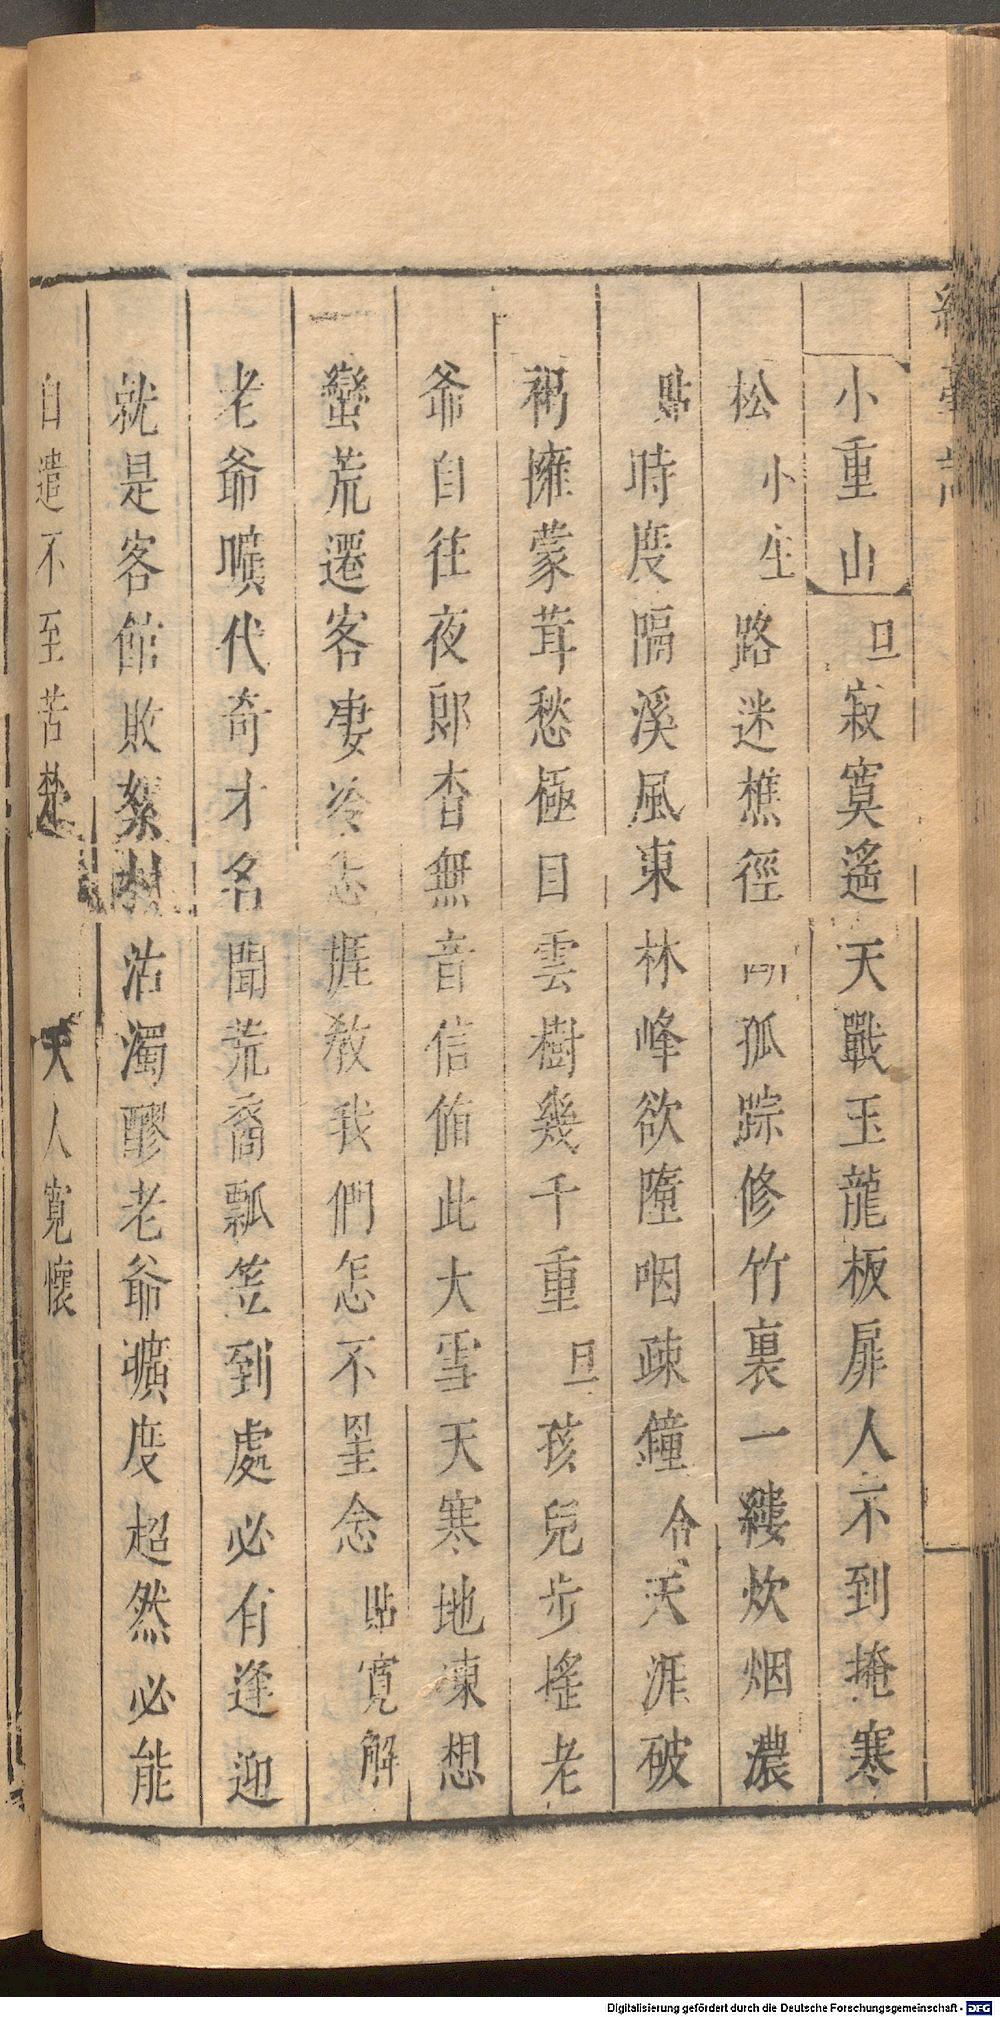 小重山 旦 寂寞遙天戰玉龍板扉人不到掩寒
松 小生 路迷樵徑 孤踪修竹裏一縷炊烟濃
貼 時度隔溪風東林峰欲墮咽疎鐘 合 天涯破
衲擁蒙茸愁極目雲樹幾千重 旦 孩兒步搖老
爺自往夜郎杳無音信値此大雪天寒地凍想
蠻荒遷客凄冷 捱教我們怎不罣念 貼寬解
老爺曠代奇才名聞荒裔瓢笠到處必有逢迎
就是客館敗絮 沽濁醪老爺曠度超然必能
自遣不至苦楚 夫人寬懷
Digitalisierung gefördert durch die Deutsche Forschungsgemeinschaft - DFG